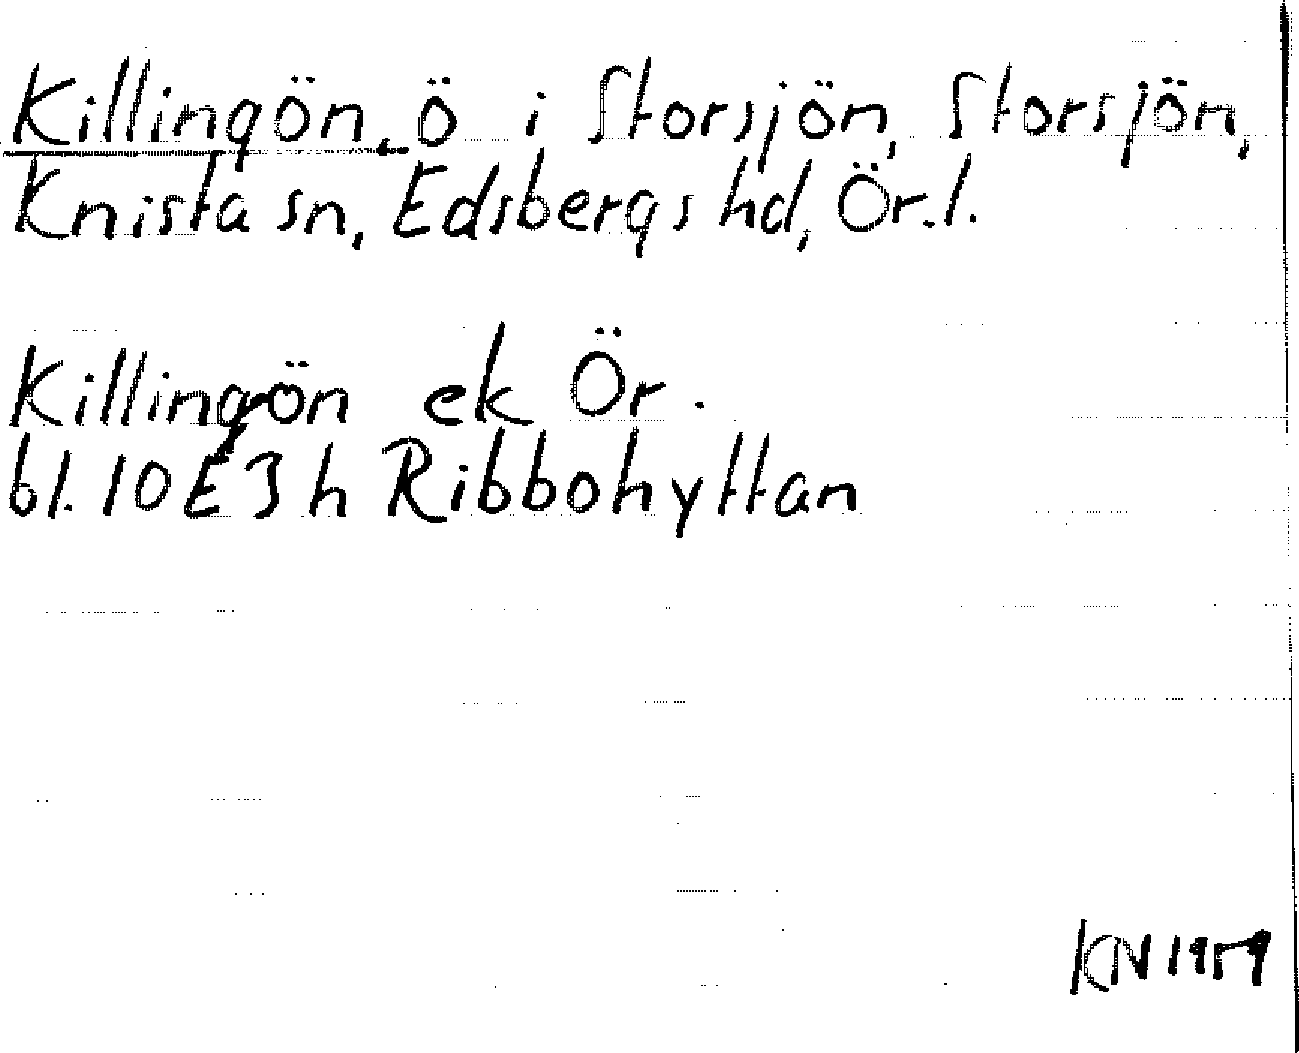 Killingön, ö i Storsjön, Storsjön,
Knista sn, Edsbergs hd, Ör. l.
Killingön ek Ör.
bl. 10 E 3 h Ribbohyttan
KN 1959